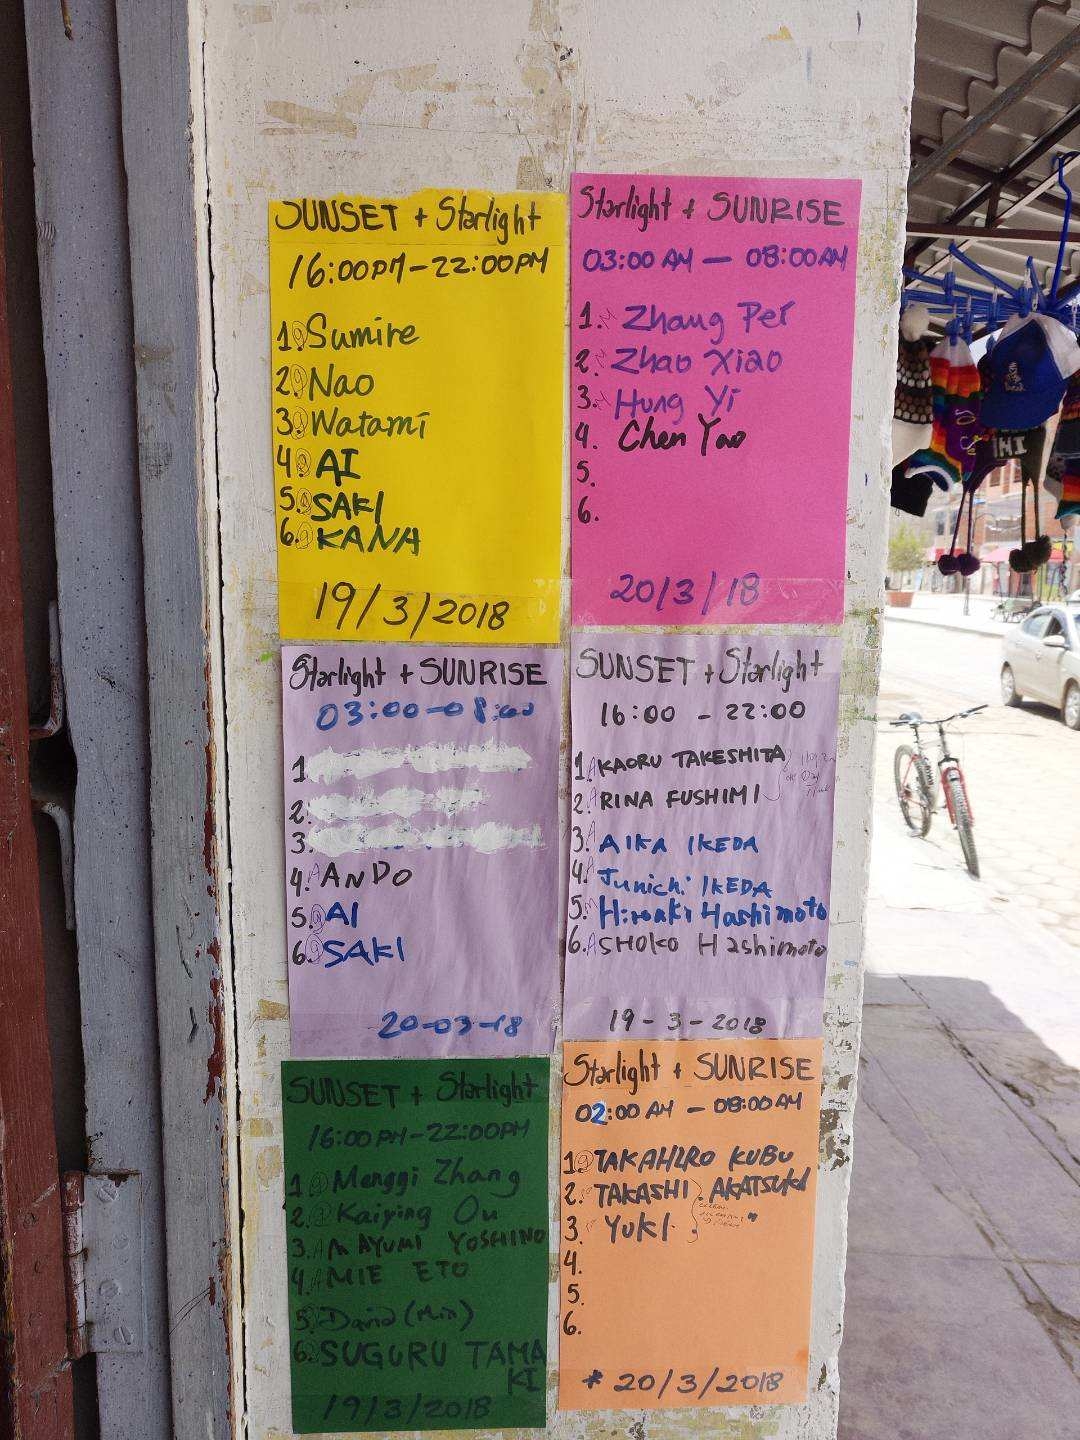 SUNSET + Starlight
16:00PM-22:00PM
1. Sumire
2. Nao
3. Watami
4. AI
5. SAKI
6. KANA
19/3/2018
Starlight + SUNRISE
03:00 AM — 08:00AM
1. Zhang Pei
2. Zhao Xiao
3. Hung Yi
4. Chen Yao
5.
6.
20/3/18
Starlight + SUNRISE
03:00-08:00
1.
2.
3.
4. ANDO
5. AI
6. SAKI
20-03-18
SUNSET + Starlight
16:00 - 22:00
1. KAORU TAKESHITA
2. RINA FUSHIMI
3. AIKA IKEDA
4. Junichi IKEDA
5. Hiroaki Hashimoto
6. SHOKO Hashimoto
19-3-2018
SUNSET + Starlight
16:00PM-22:00PM
1. Menggi Zhang
2. Kaiying Ou
3. MAYUMI YOSHINO
4. MIE ETO
5. David (Min)
6. SUGURU TAMA
KI
19/3/2018
Starlight + SUNRISE
02:00 AM — 08:00AM
1. TAKAHIRO KUBU
2. TAKASHI AKATSUKI
3. YUKI
4.
5.
6.
* 20/3/2018